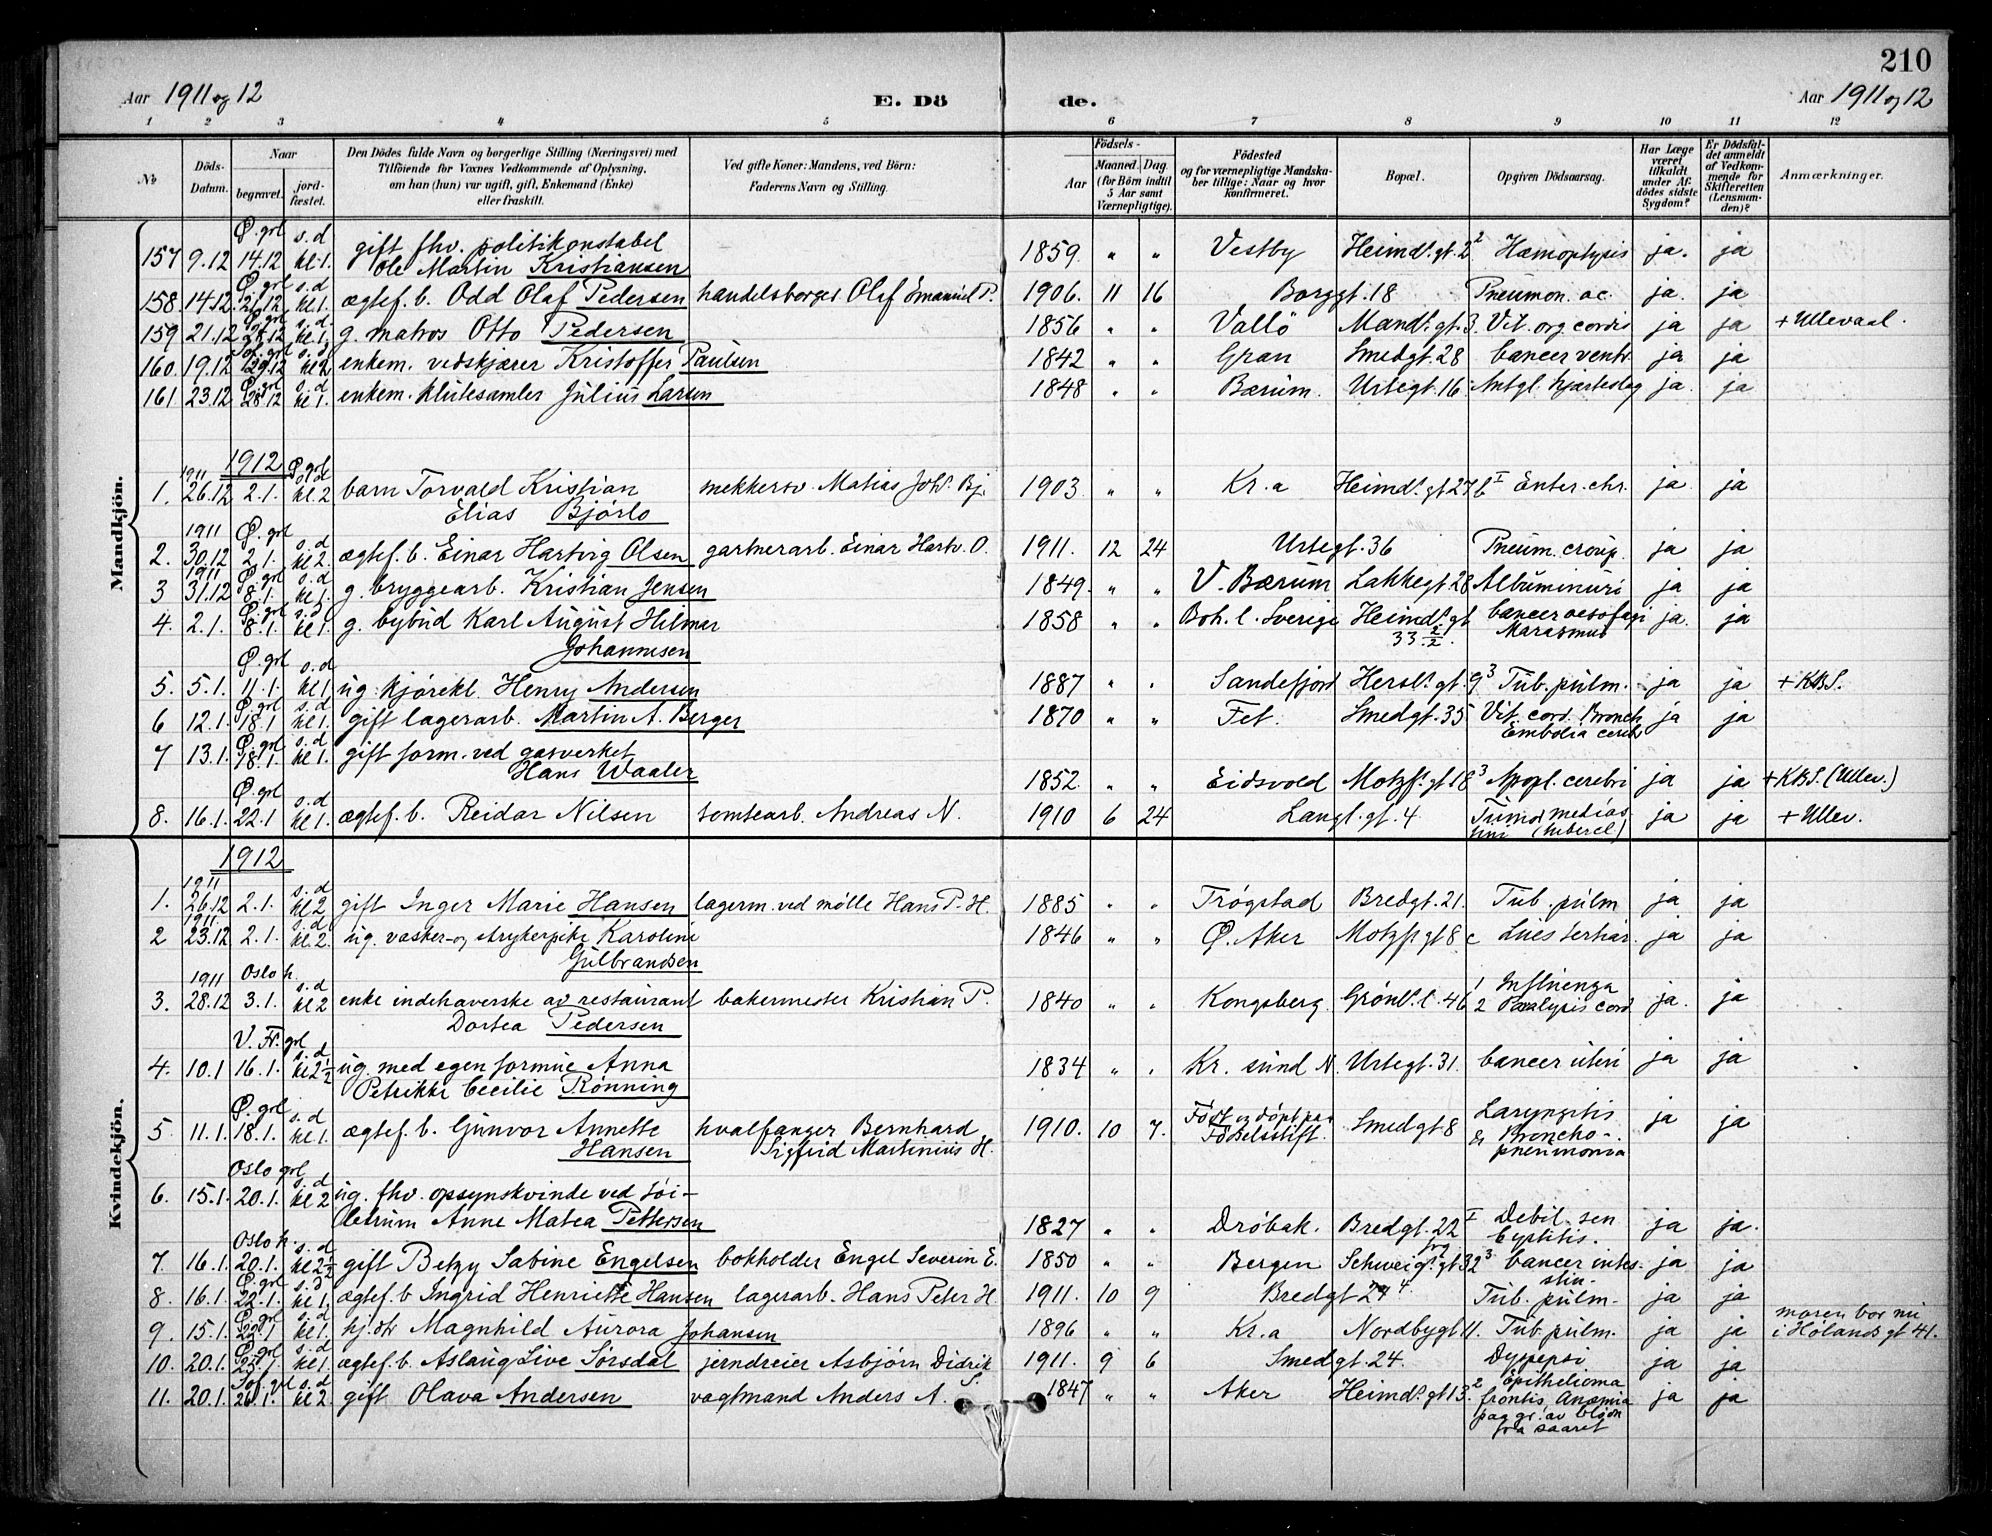 210
Aar 1911 og 12
E. Dö
de.
Aar 1911 og 12
1 2 3 4 5 6 7 8 9 10 11 12
No
Döds-Datum.
Naar
begravet.
jordfæstet.
Den Dödes fulde Navn og borgerlige Stilling (Næringsvei) med
Tilföiende for Voxnes Vedkommende af Oplysning,
om han (hun) var ugift, gift, Enkemand (Enke)
eller fraskilt.
Ved gifte Koner: Mandens, ved Börn:
Faderens Navn og Stilling.
Födsels-
Aar
Maaned. Dag.
(for Börn indtil
5 Aar samt
Værnepligtige).
Födested
og for værnepligtige Mandskaber tillige: Naar og hvor
konfirmeret.
Bopæl.
Opgiven Dödsaarsag.
Har Læge
været
tilkaldt
under Afdödes sidste
Sygdom?
Er Dödsfaldet anmeldt
af Vedkommende for
Skifteretten
(Lensmanden)?
Anmærkninger.
Mandkjön.
Ø. grl s. d
157 9.12 14.12 kl 1. gift fhv. politikonstabel
Ole Martin Kristiansen 1859 " " Vestby Heimds. gt. 2 2 Hæmoptysis ja. ja
Ø. grl s. d
158. 14.12 21.12 kl 1. ægtef. b. Odd Olaf Pedersen handelsborger Olaf Emanuel P. 1906. 11 16 Borggt. 18 Pneumon. ac. ja. ja
159 21.12 kl 1. g. matros Otto Pedersen 1856 " " Vallö Mands. gt. 3. Vit. org. cordis ja ja + Ullevaal.
160. 19.12 29.12 kl 2 enkem. vedskjærer Kristoffer Paulsen 1842 " " Gran Smedgt. 28 Cancer ventr. ja ja
Ø. grl s. d
161 23.12 28.12 kl 1. enkem. klutesamler Julius Larsen 1848 " " Bærum. Urtegt. 16. Antgl. hjerteslag ja. ja
1912
1911 Ø. grl
1. 26.12 2.1. kl. 2 barn Torvald Kristian
Elias Bjørlo mekkersv. Matias Johs. Bj. 1903 " " Kr.a Heimds. gt 27 b I Enter. chr. ja. ja
1911 Ø. grl s. d
2. 30.12 2.1. kl 2. ægtef. b. Einar Hartvig Olsen gartnerarb. Einar Hartv. O. 1911. 12 24 Urtegt. 36 Pneum. croup. ja ja
1911 Ø. grl s. d
3 31.12 8.1. kl 1. g. bryggearb. Kristian Jensen 1849. " " V. Bærum Lakkegt. 28 Albuminuri ja ja
Ø. grl s. d
4. 2.1. 8.1. kl 1. g. bybud Karl August Hilmar
Johannesen 1858 " " Boh. l. Sverige Heimds. gt
33 2/2. Cancer oesofagi
Marasmus ja. ja
Ø. grl s. d
5. 5.1. 11.1. kl 1. ug. kjørekl. Henry Andersen 1887 " " Sandefjord Hersls. gt. 9 3 Tub. pulm. ja ja + KBS.
Ø. grl s. d
6 12.1. 18.1 kl 1. gift lagerarb. Martin A. Berger 1870 " " Fet. Smedgt. 35 Vit. cord. Bronch.
Embolia cereb. ja ja
Ø. grl s. d
7 13.1. 18.1. kl 1. gift form. ved gasverket
Hans Waaler 1852. " " Eidsvold Motzfs. gt 18 3 Apopl. cerebri ja ja + KBS. (Ullev.)
Ø. grl s. d
8. 16.1. 22.1 kl 1. ægtef. b. Reidar Nilsen tomtearb. Andreas N. 1910 6 24 Langl. gt. 4 Tumor mediastini (tubercl) ja ja + Ullev.
Kvindekjön.
1912
1911 s. d
1. 26.12 2.1. kl 2 gift Inger Marie Hansen lagerm. ved mølle Hans P. H. 1885 " " Trøgstad Bredgt. 21. Tub. pulm ja ja
1911 s. d
2 23.12 2.1. kl. 2. ug. vasker- og strykerpike Karoline
Gulbrandsen 1846 " " Ø. Aker Motzfs. gt 8 c Lues tertiar. ja ja
1911 Oslo h. s. d
3. 28.12 3.1. kl 2 enke indehaverske av restaurant
Dortea Pedersen bakermester Kristian P. 1840 " " Kongsberg Grønls. l. 46 1 Influenza
2 Paralysis cord ja. ja
V. Fr. grl s. d
4. 10.1 16.1. kl 2 1/2 ug. med egen formue Anna
Petrikke Cecilie Rønning 1834 " " Kr. sund N. Urtegt. 31. Cancer uteri ja ja
Ø. grl s. d
5. 11.1. 18.1. kl 1. ægtef. b. Gunvor Annette
Hansen hvalfanger Bernhard
Sigfrid Martinius H. 1910. 10 7. Født og døpt paa
Fødselsstift. Smedgt 8 Laryngitis
& Broncho-
pneumonia ja ja
Oslo grl s. d
6. 15.1. 20.1. kl 2 ug. fhv. opsynskvinde ved
Anne Matea Pettersen 1827 " " Drøbak. Bredgt. 22 I Debil. sen
Cystitis. ja ja.
Oslo h. s. d
7. 16.1. 20.1. kl 2 1/2 gift Betzy Sabine Engelsen bokholder Engel Severin E. 1850 " " Bergen Schweigs. gt 32 3. Cancer intestin- ja ja
Ø. grl s. d
8. 16.1. 22.1. kl 1. ægtef. b Ingrid Henriette Hansen lagerarb. Hans Peter H. 1911. 10 9 Bredgt 27 4 Tub. pulm- ja ja
Ø. grl s. d
9. 15.1. 22.1 kl 1. hj. dtr Magnhild Aurora Johansen 1896 " " Kr.a Nordbygt 11. Tub. pulm. ja ja moren bor nu
i Hølands gt 41.
Ø. grl s. d
10. 20.1. 23.1. kl 1. ægtef. b. Aslaug Live Sørsdal jerndreier Asbjørn Didrik S. 1911. 9 6 Smedgt. 24. Dyspepsi ja ja
s. d
11. 20.1. 26.1. kl 2. gift Olava Andersen vagtmand Anders A. 1847 " " Aker Heimds. gt 13. 2 Epithelioma
frontis, Anæmia
paa gr. av blødn
fra saaret ja ja